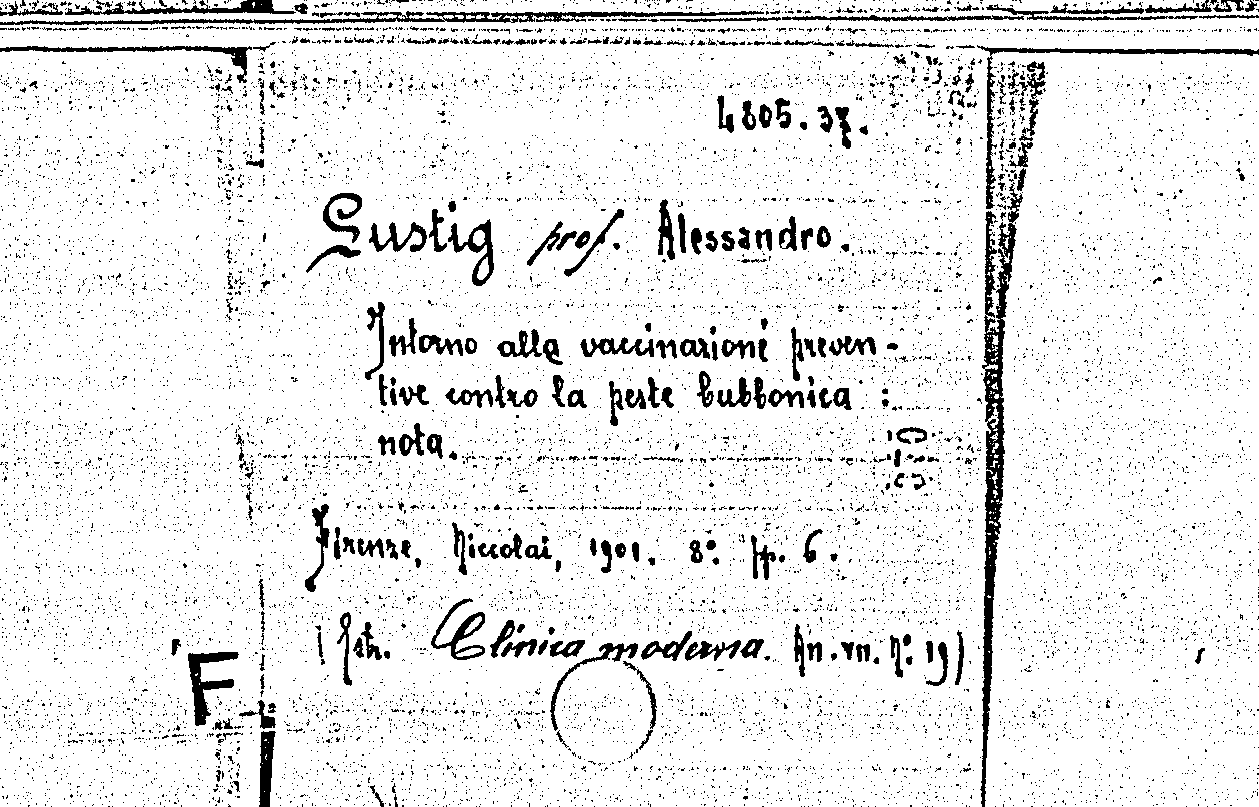 4805.37.
Lustig prof. Alessandro.
Intorno alla vaccinazioni preven-
tive contro la peste bubbonica :
nota.
Firenze, Niccolai, 1901. 8º. pp. 6.
(Estr. Clinica moderna. An. VII. Nº. 19)
F